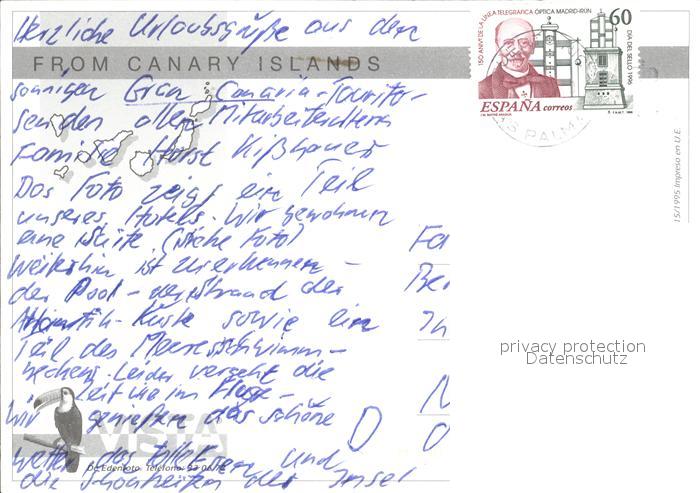 Herzliche Urlaubsgrüße aus dem
FROM CANARY ISLANDS
sonnigen Gran Canaria-Tourito-
senden allen Mitarbeitern
Familie Horst
Das Foto zeigt ein Teil
unseres Hotels. Wir gewohnen
eine Suite. (siehe Foto)
Weiterhin ist zu erkennen -
der Pool - der
Küste sowie ein
Teil des Meeresschwimm-
beckens. Leider vergeht die
Zeit wie im Fluge -
Wir genießen das schöne
Wetter, das und
die Schönheiten der Insel
VISTA
VISTA
De Edenfoto Telefono:
150 ANIV DE LA LINEA TELEGRAFICA OPTICA MADRID-IRUN
60
DIA DEL SELLO 1995
ESPAÑA correos
PALM
15/1995 Impreso en U.E.
Fa
Be
D
privacy protection
Datenschutz